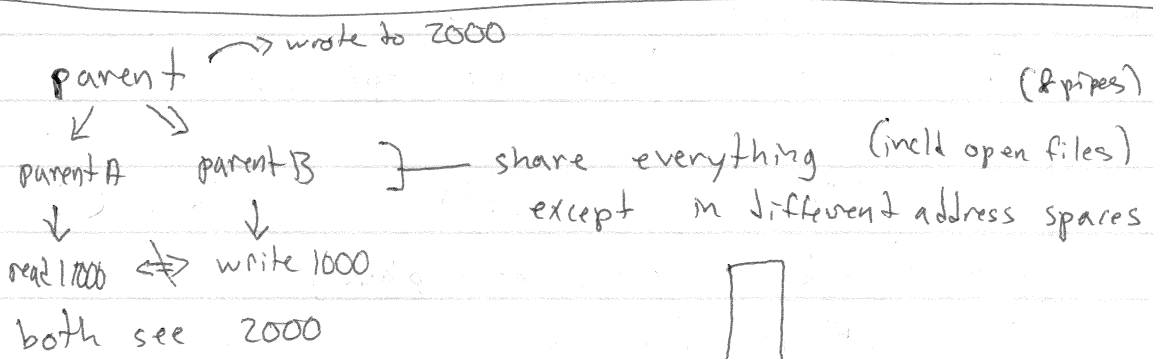 parent → wrote to 2000
(& pipes)
parent A parent B } share everything (incld open files)
except in different address spaces
read 1000 write 1000
both see 2000